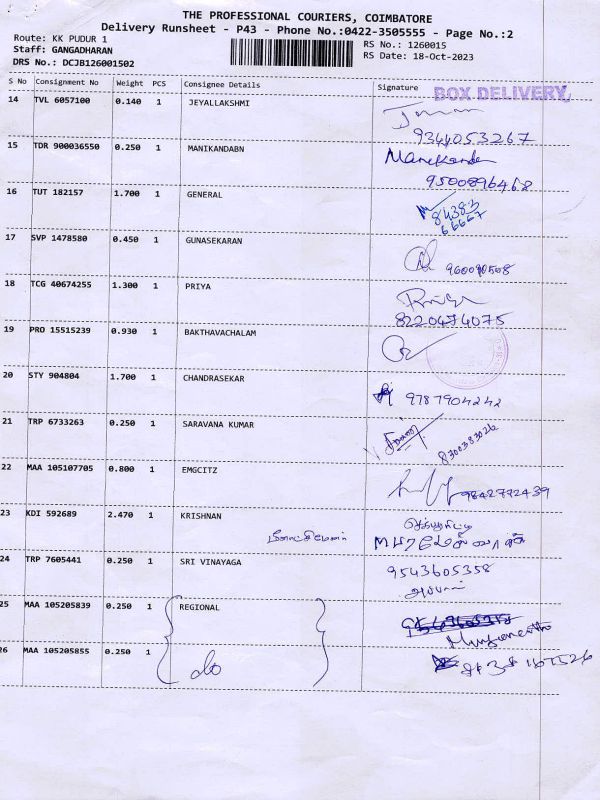 THE PROFESSIONAL COURIERS, COIMBATORE
Delivery Runsheet - P43 - Phone No.:0422-3505555 - Page No.:2
Route: KK PUDUR 1
Staff: GANGADHARAN
DRS No.: DCJB126001502
RS No.: 1260015
RS Date: 18-Oct-2023
S No Consignment No Weight PCS Consignee Details Signature
BOX DELIVERY
14 TVL 6057100 0.140 1 JEYALLAKSHMI
9344053267
15 TDR 900036550 0.250 1 MANIKANDABN Manikandan
9500896468
16 TUT 182157 1.700 1 GENERAL 84383
66667
17 SVP 1478580 0.450 1 GUNASEKARAN
18 TCG 40674255 1.300 1 PRIYA Priya
8220474075
19 PRO 15515239 0.930 1 BAKTHAVACHALAM
20 STY 904804 1.700 1 CHANDRASEKAR 9787904242
21 TRP 6733263 0.250 1 SARAVANA KUMAR
22 MAA 105107705 0.800 1 EMGCITZ 9842772439
23 KDI 592689 2.470 1 KRISHNAN
24 TRP 7605441 0.250 1 SRI VINAYAGA 9543605358
25 MAA 105205839 0.250 1 REGIONAL
26 MAA 105205855 0.250 1 do